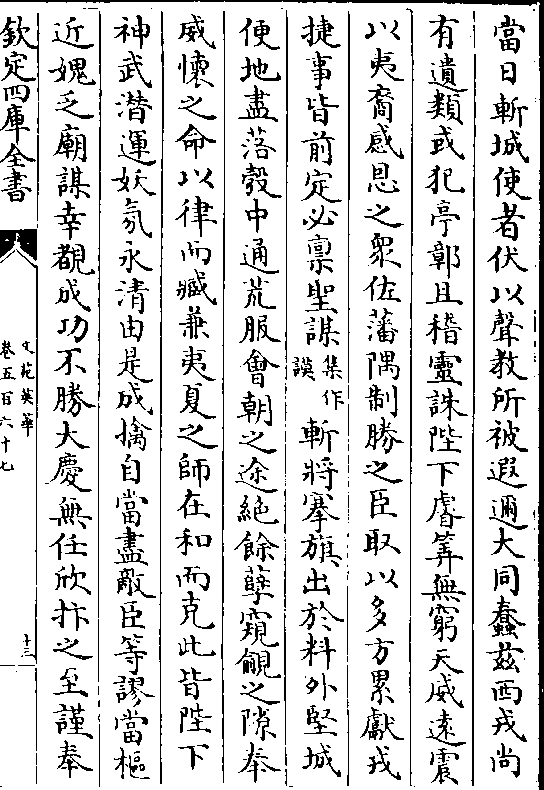 當日斬城使者伏以聲教所被遐邇大同蠢茲西戎尚
有遺類或犯亭鄣且稽靈誅陛下睿筭無窮天威遠震
以夷裔感恩之衆佐藩隅制勝之臣取以多方累獻戎
捷事皆前定必禀聖謀集作謨斬將搴旗出於料外堅城
便地盡落彀中通荒服會朝之途絶餘孽窺覦之隙奉
威懷之命以律而臧兼夷夏之師在和而克此皆陛下
神武潛運妖氛永清由是成擒自當盡敵臣等謬當樞
近媿乏廟謀幸覩成功不勝大慶無任欣抃之至謹奉
欽定四庫全書
文苑英華
卷五百六十七
十三